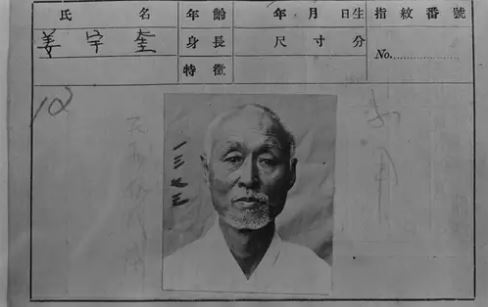 氏名 年齡 年月日生 指紋番號
姜宇奎 身長 尺寸分 No.
特徵
12
一三七三